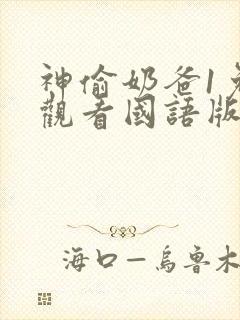 神偷奶爸1免
觀看國語版
海口—烏魯木